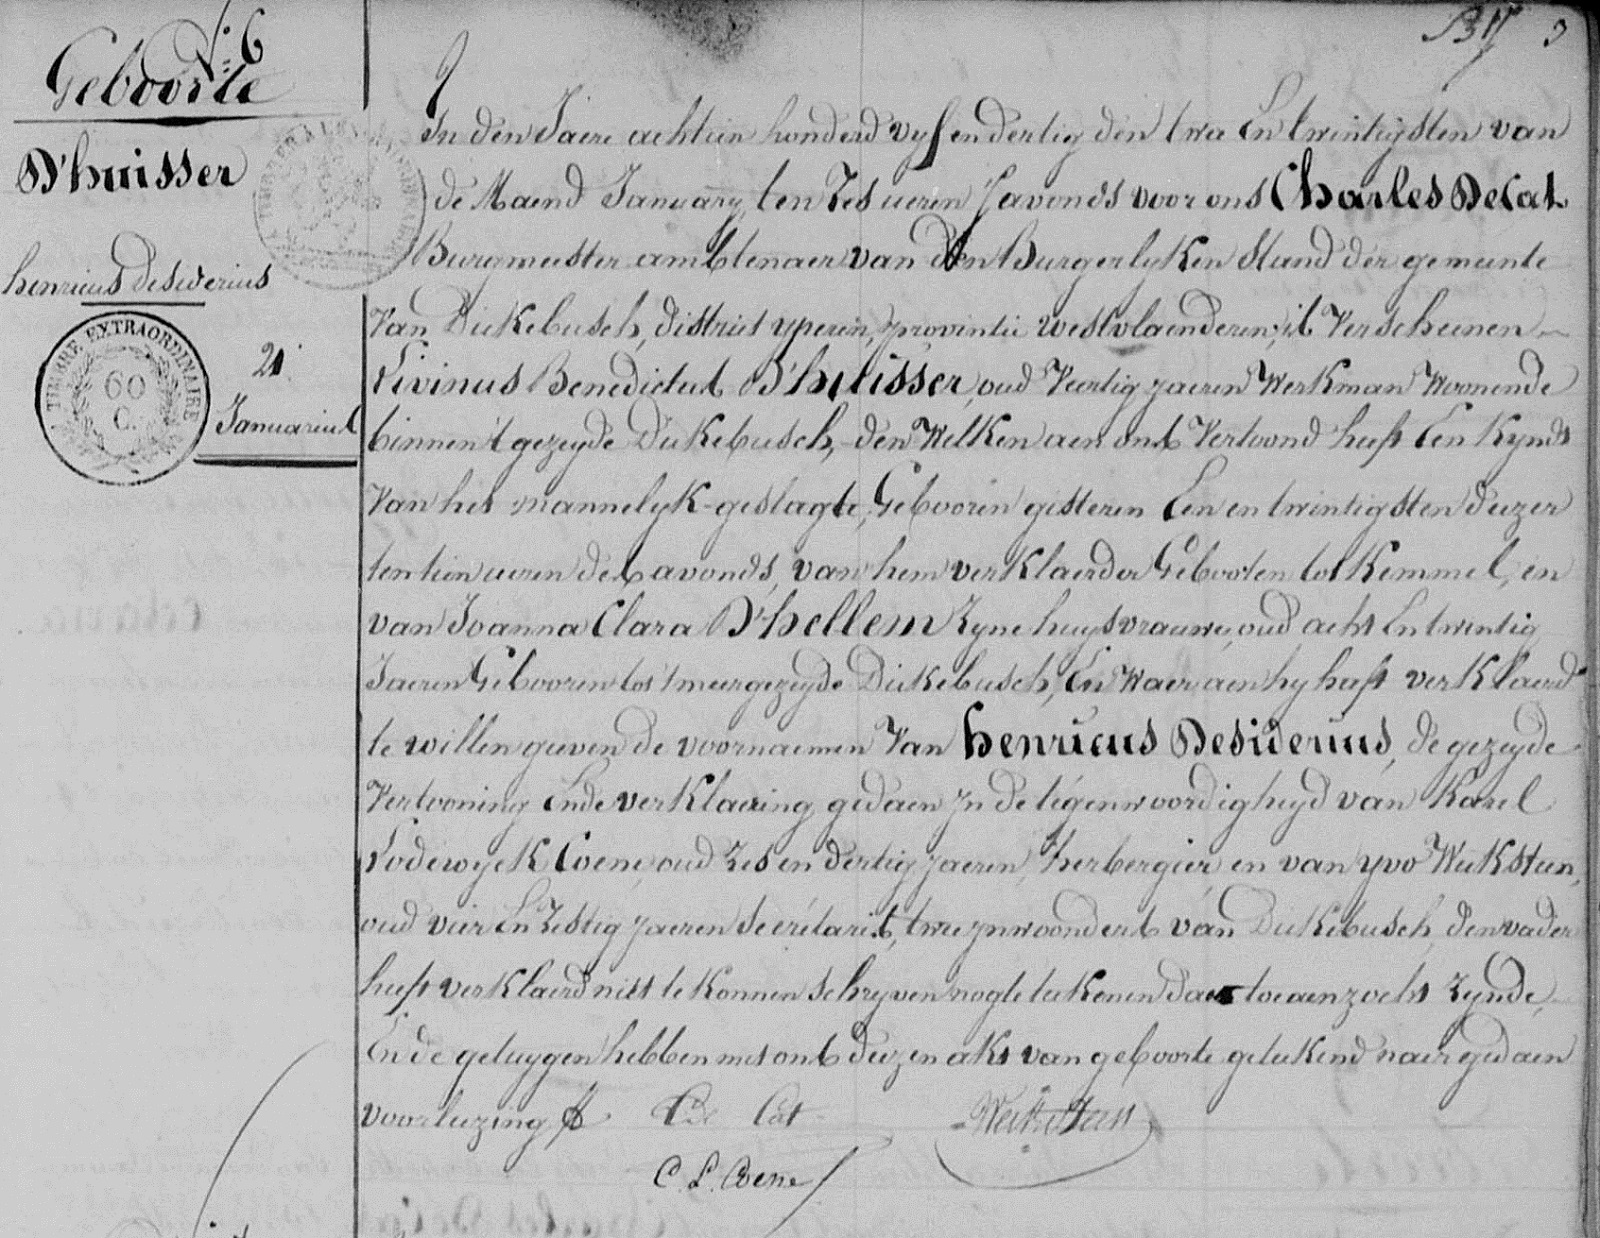 N° 6
Geboorte
D'huisser
henricus Desiderius
21
Januarius
TIMBRE EXTRAORDINAIRE
60
C.
In den Jaere achtien honderd vyf en dertig den twee En twintigsten van
de Maend January, ten Zes ueren s'avonds voor ons Charles DeCat
Burgmeester ambtenaer van den Burgerlyken Stand der gemeente
Van Dickebusch, district yperen, provintie westvlaenderen, is Verscheenen
Livinus Benedictus D'huisser, oud Veertig jaeren Werkman Woonende
binnen't gezeyde Dickebusch, den Welken aen ons Vertoond heeft Een Kynd
Van het mannelyk geslagte, Gebooren gisteren Een en twintigsten deezer
ten tien ueren des avonds, van hem verklaerder Gebooren tot Kemmel, en
van Joanna Clara D'hellem Zyne huysvrauwe, oud acht En twintig
Jaeren Gebooren tot 't meergezeyde Dickebusch, En Waer aen hy heeft verklaerd
te willen geeven de voornaemen Van henricus Desiderius, de gezeyde
Vertooning Ende verklaering gedaen in de tégenwoordigheyd van Karel
Lodewyck Coene, oud Zes en dertig jaeren, herbergier, en van yvo Weiksteen,
oud vier En Zestig jaeren Secrétaris, twee ynwoonders van Dickebusch, den vader
heeft verklaerd niet te konnen schryven nogte teekenen daer toe aenzocht Zynde,
En de getuygen hebben met ons deezen akt van geboorte geteekend naer gedaen
voorleezing
De Cat
Weiksteen
C. L. Coene